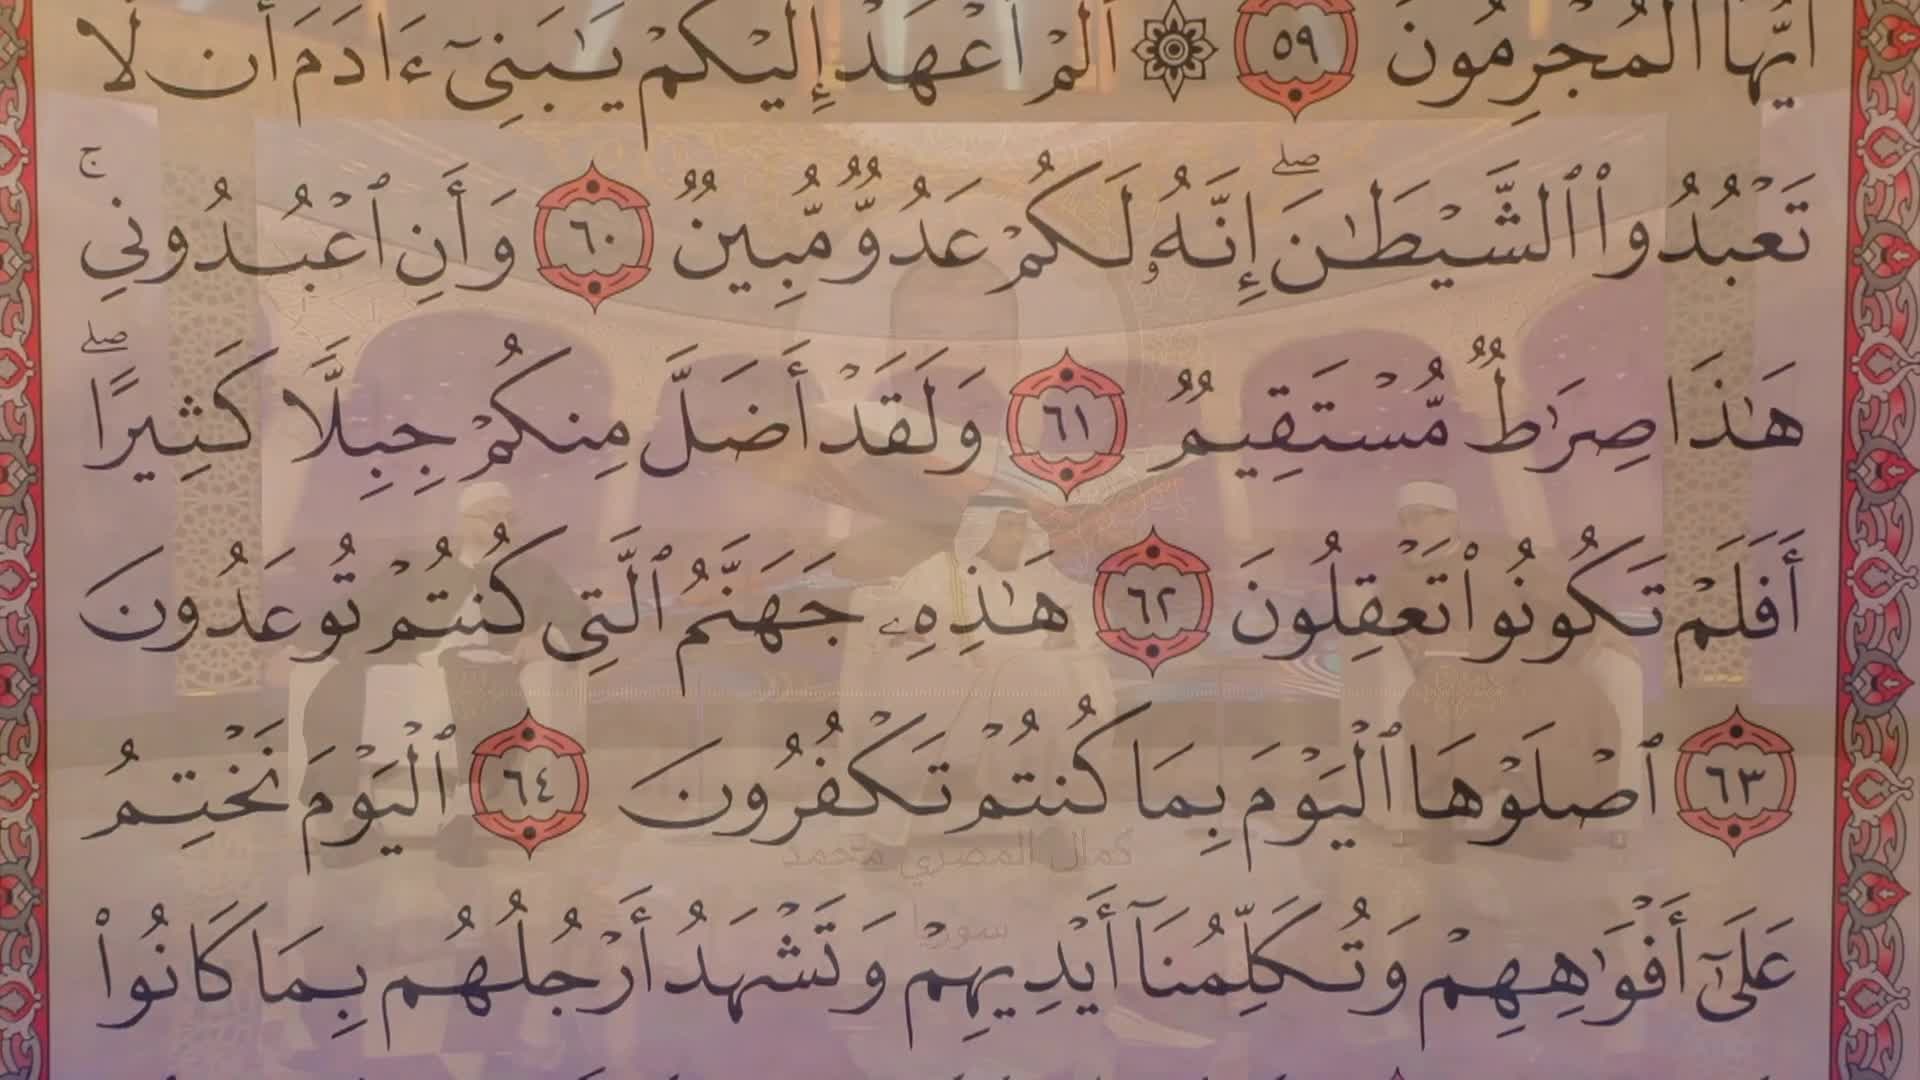 أَيُّهَا ٱلۡمُجۡرِمُونَ ٥٩ ۞ أَلَمۡ أَعۡهَدۡ إِلَيۡكُمۡ يَٰبَنِيٓ ءَادَمَ أَن لَّا
تَعۡبُدُواْ ٱلشَّيۡطَٰنَۖ إِنَّهُۥ لَكُمۡ عَدُوّٞ مُّبِينٞ ٦٠ وَأَنِ ٱعۡبُدُونِيۚ
هَٰذَا صِرَٰطٞ مُّسۡتَقِيمٞ ٦١ وَلَقَدۡ أَضَلَّ مِنكُمۡ جِبِلّٗا كَثِيرًاۖ
أَفَلَمۡ تَكُونُواْ تَعۡقِلُونَ ٦٢ هَٰذِهِۦ جَهَنَّمُ ٱلَّتِي كُنتُمۡ تُوعَدُونَ
٦٣ ٱصۡلَوۡهَا ٱلۡيَوۡمَ بِمَا كُنتُمۡ تَكۡفُرُونَ ٦٤ ٱلۡيَوۡمَ نَخۡتِمُ
كمال المصري محمد
سوريا
عَلَىٰٓ أَفۡوَٰهِهِمۡ وَتُكَلِّمُنَآ أَيۡدِيهِمۡ وَتَشۡهَدُ أَرۡجُلُهُم بِمَا كَانُواْ